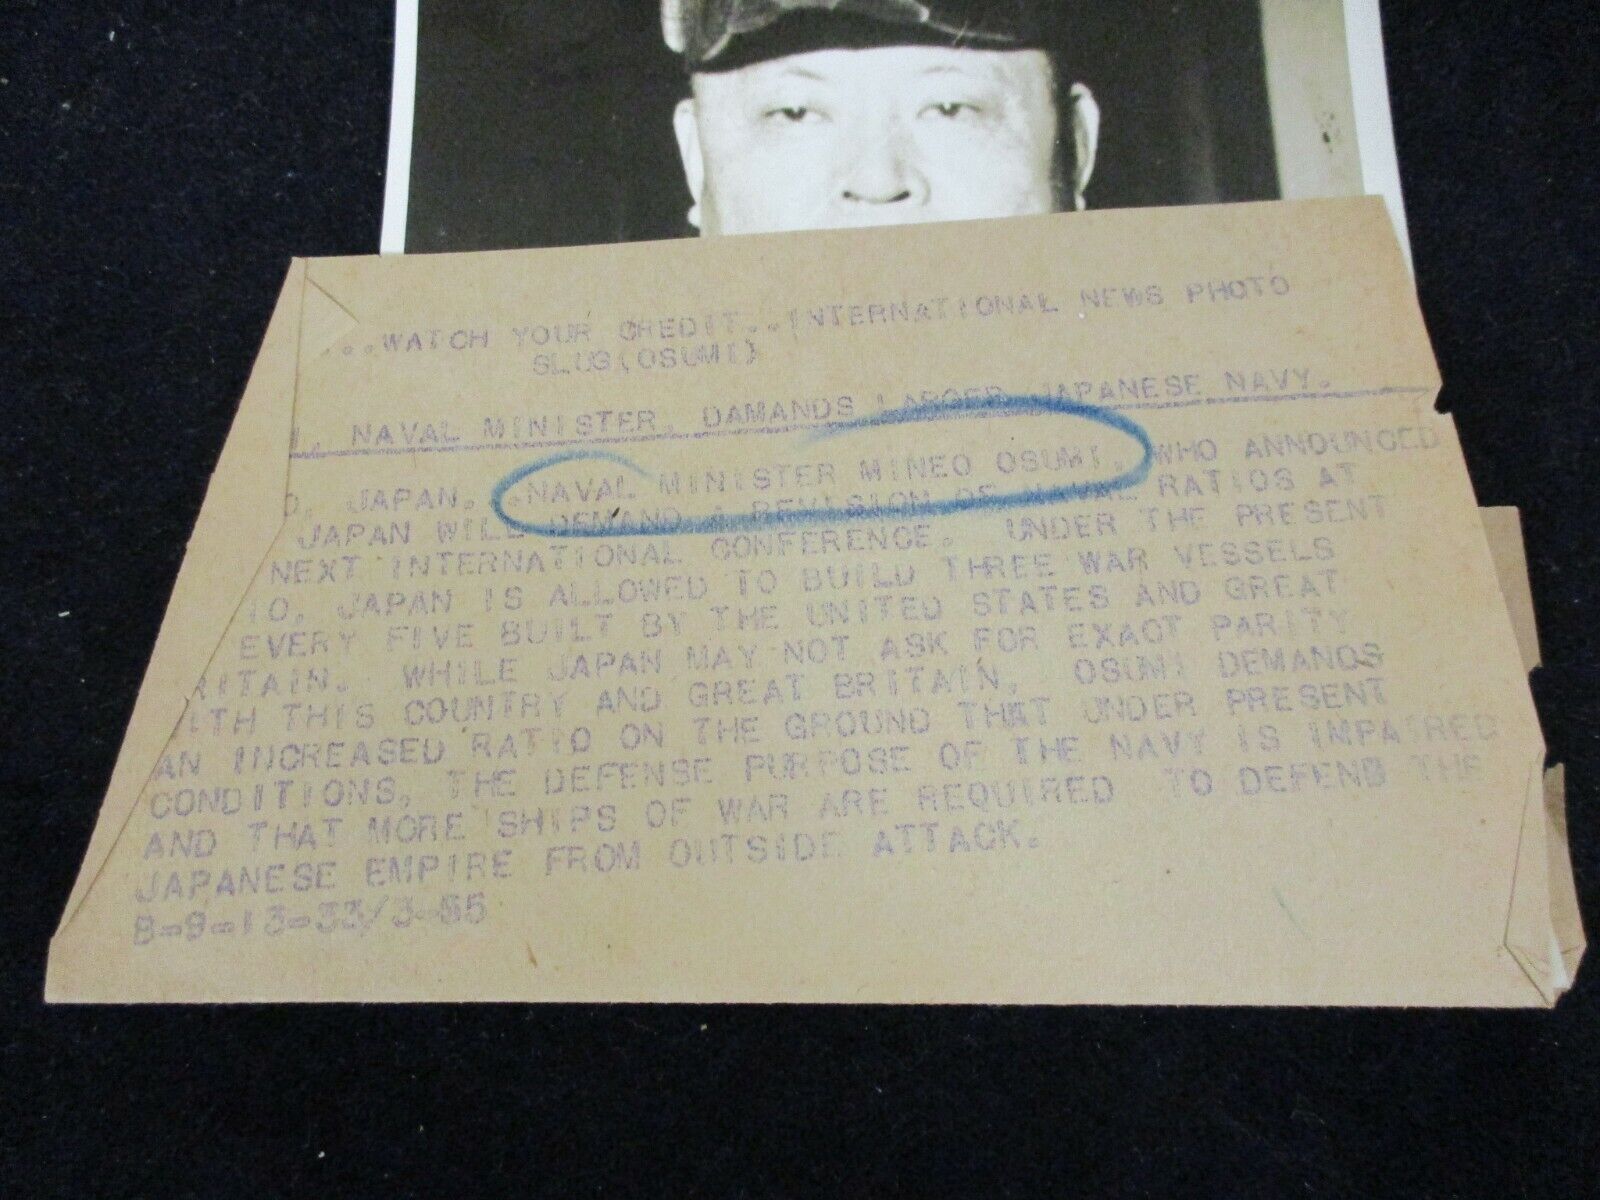 ...WATCH YOUR CREDIT..INTERNATIONAL NEWS PHOTO
SLUG(OSUMI)
L NAVAL MINISTER, DAMANDS LARGER JAPANESE NAVY.
O, JAPAN. ..NAVAL MINISTER MINEO OSUMI, WHO ANNOUNCED
JAPAN WILL DEMAND A REVISION OF NAVAL RATIOS AT
NEXT INTERNATIONAL CONFERENCE. UNDER THE PRESENT
IO, JAPAN IS ALLOWED TO BUILD THREE WAR VESSELS
EVERY FIVE BUILT BY THE UNITED STATES AND GREAT
RITAIN. WHILE JAPAN MAY NOT ASK FOR EXACT PARITY
ITH THIS COUNTRY AND GREAT BRITAIN, OSUMI DEMANDS
AN INCREASED RATIO ON THE GROUND THAT UNDER PRESENT
CONDITIONS, THE DEFENSE PURPOSE OF THE NAVY IS IMPAIRED
AND THAT MORE SHIPS OF WAR ARE REQUIRED TO DEFEND THE
JAPANESE EMPIRE FROM OUTSIDE ATTACK.
B-9-13-33/3-55